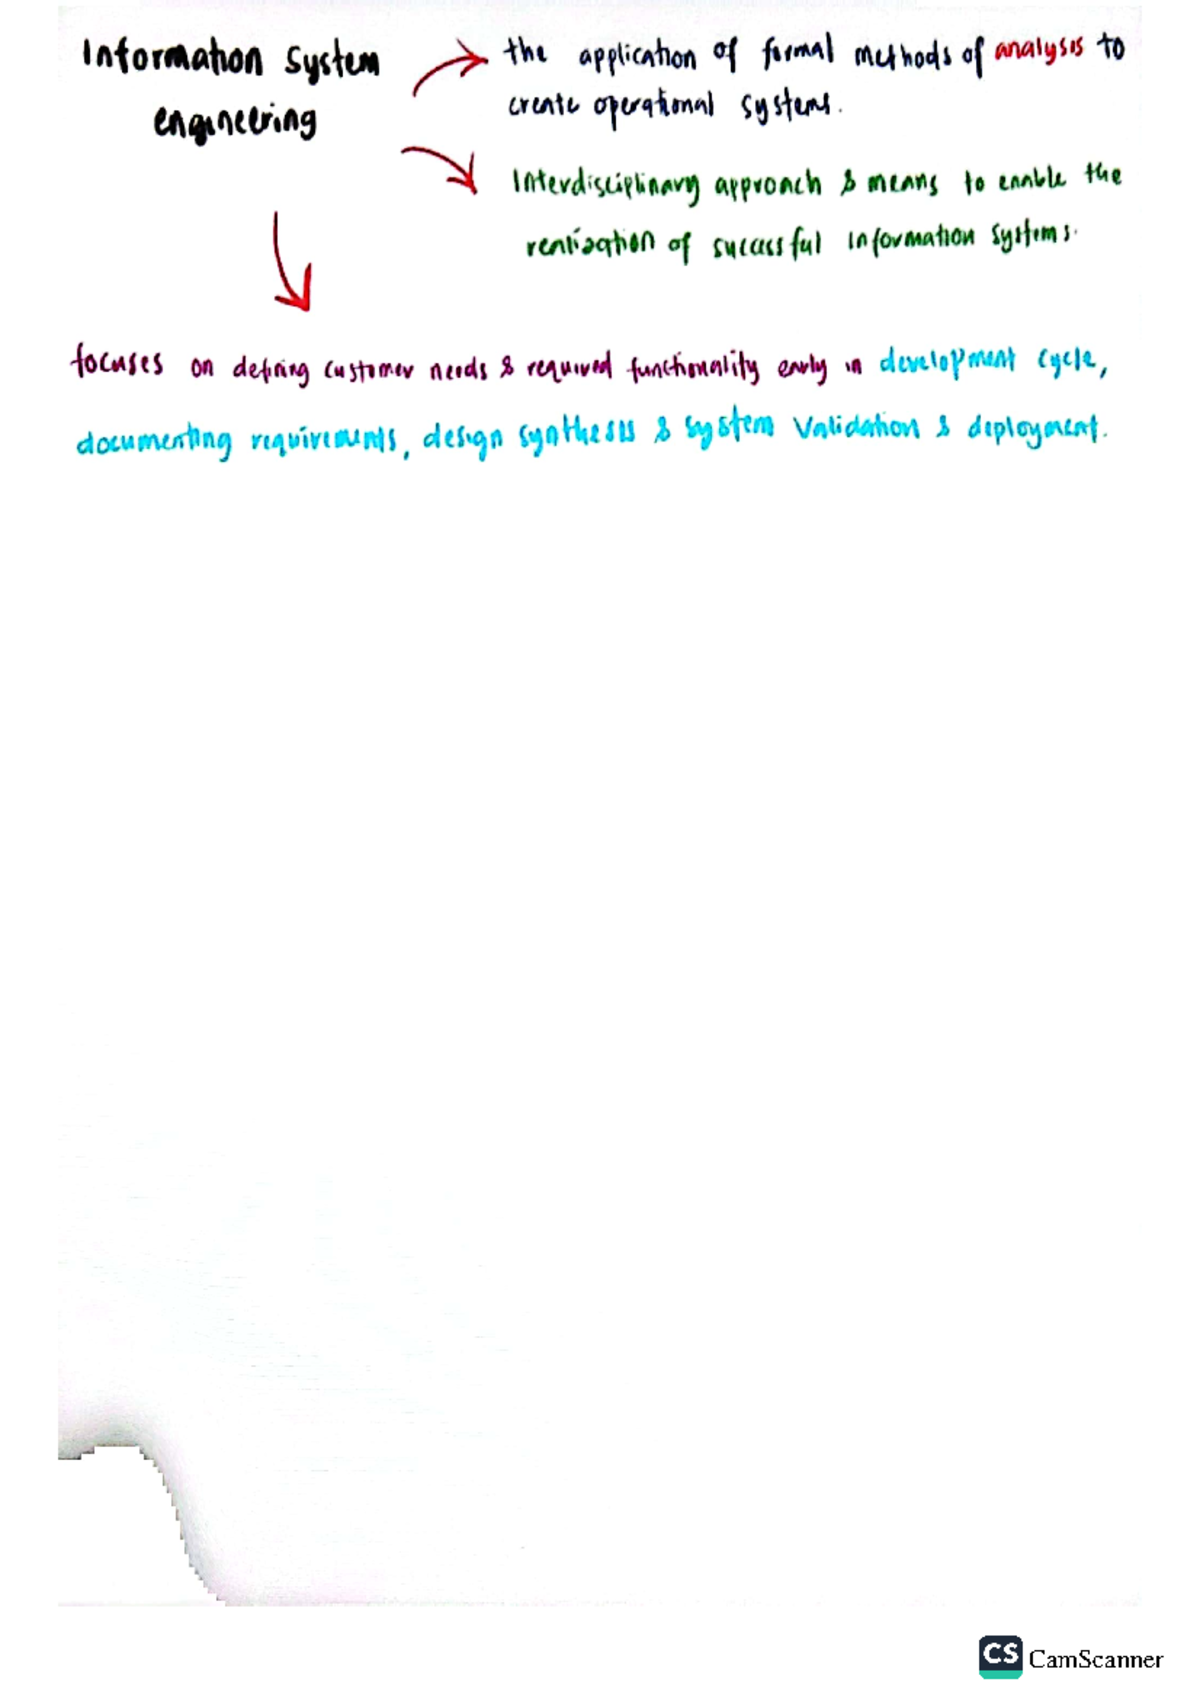 Information System
engineering
the application of formal methods of analysis to
create operational systems.
Interdisciplinary approach & means to enable the
realization of successful information systems.
focuses on defining customer needs & required functionality early in development cycle,
documenting requirements, design synthesis & system validation & deployment.
CS CamScanner